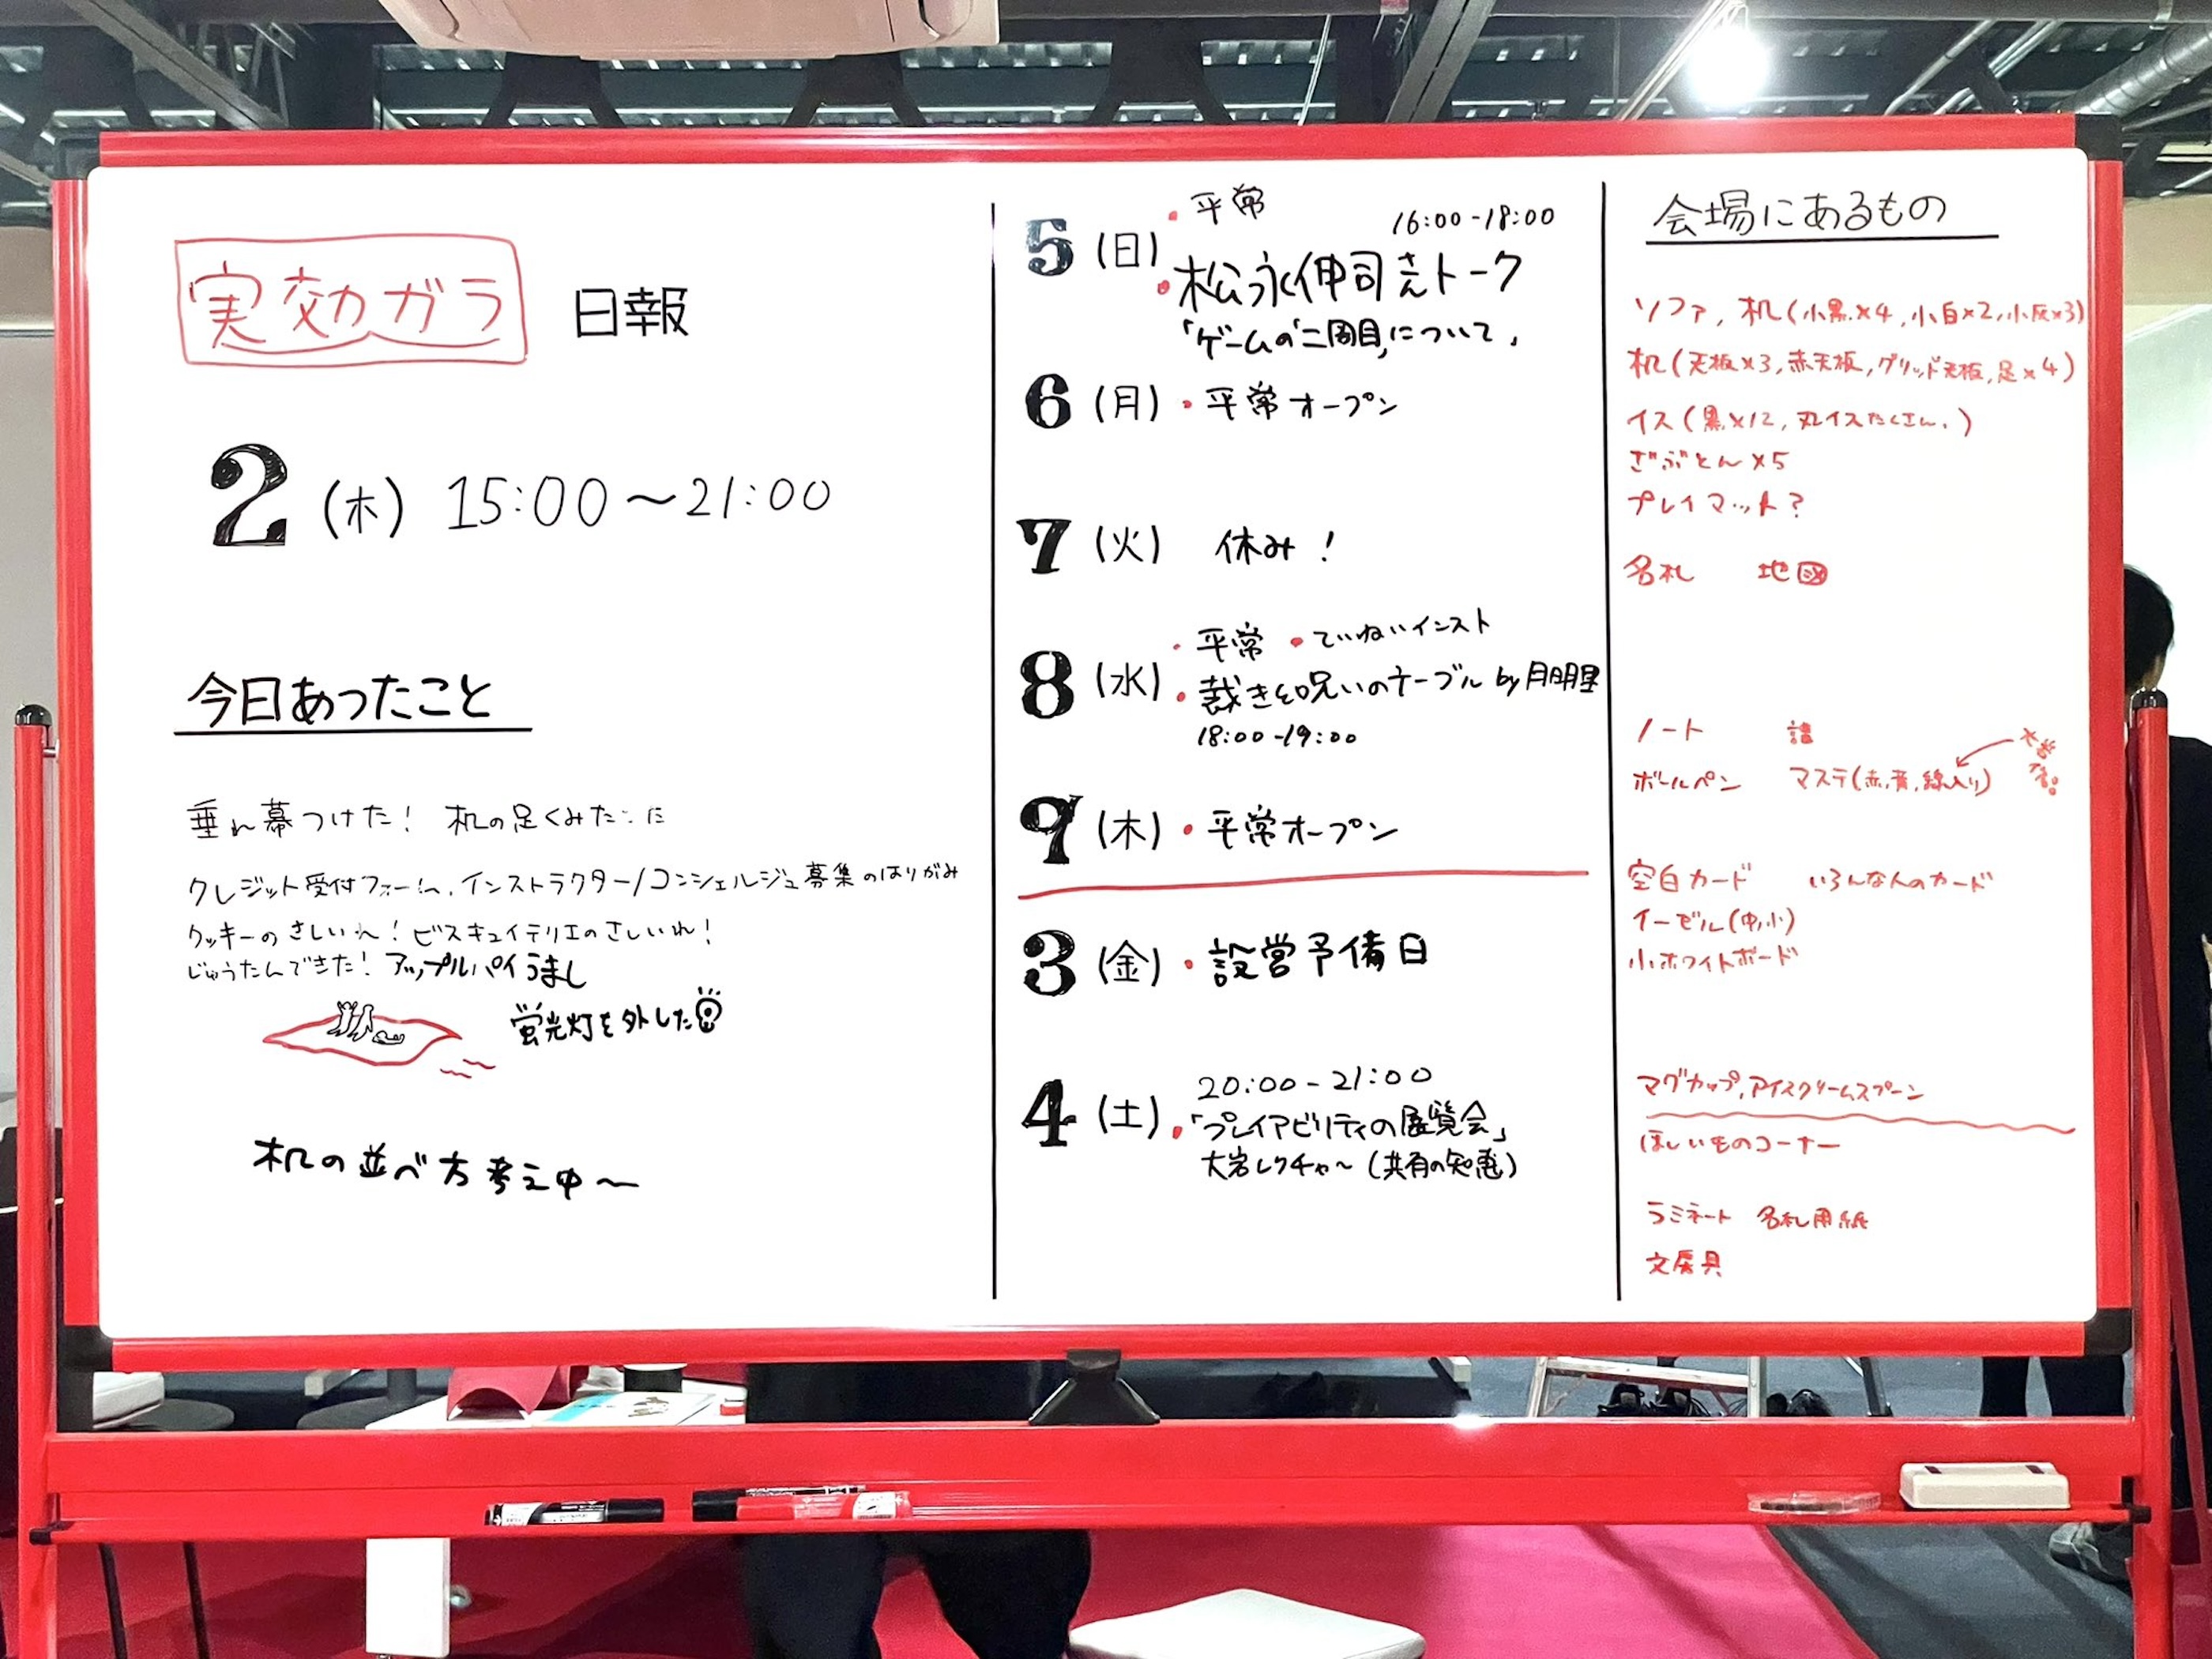 実効ガラ 日報
2 (木) 15:00〜21:00
今日あったこと
垂れ幕つけた! 机の足くみた
クレジット受付フォーム、インストラクター/コンシェルジュ募集のはりがみ
クッキーのさしいれ! ビスキュイテリエのさしいれ!
じゅうたんできた! アップルパイうまし
蛍光灯を外した
机の並べ方考え中〜
5 (日) ・平常
16:00-18:00
・松永伸司さんトーク
「ゲームの「二周目」について」
6 (月) ・平常オープン
7 (火) 休み!
8 (水) ・平常 ・ていねいインスト
・裁きと呪いのテーブル by 月明里
18:00-19:00
9 (木) ・平常オープン
3 (金) ・設営予備日
4 (土) 20:00-21:00
・「プレイアビリティの展覧会」
大岩レクチャ〜 (共有の知恵)
会場にあるもの
ソファ, 机(小黒×4, 小白×2, 小灰×3)
机(天板×3, 赤天板, グリッド天板, 足×4)
イス(黒×12, 丸イスたくさん、)
ざぶとん×5
プレイマット?
名札 地図
ノート
ボールペン マステ(赤,青,線入り)
空白カード いろんな人のカード
イーゼル(中,小)
小ホワイトボード
マグカップ,アイスクリームスプーン
ほしいものコーナー
ラミネート 名札用紙
文房具